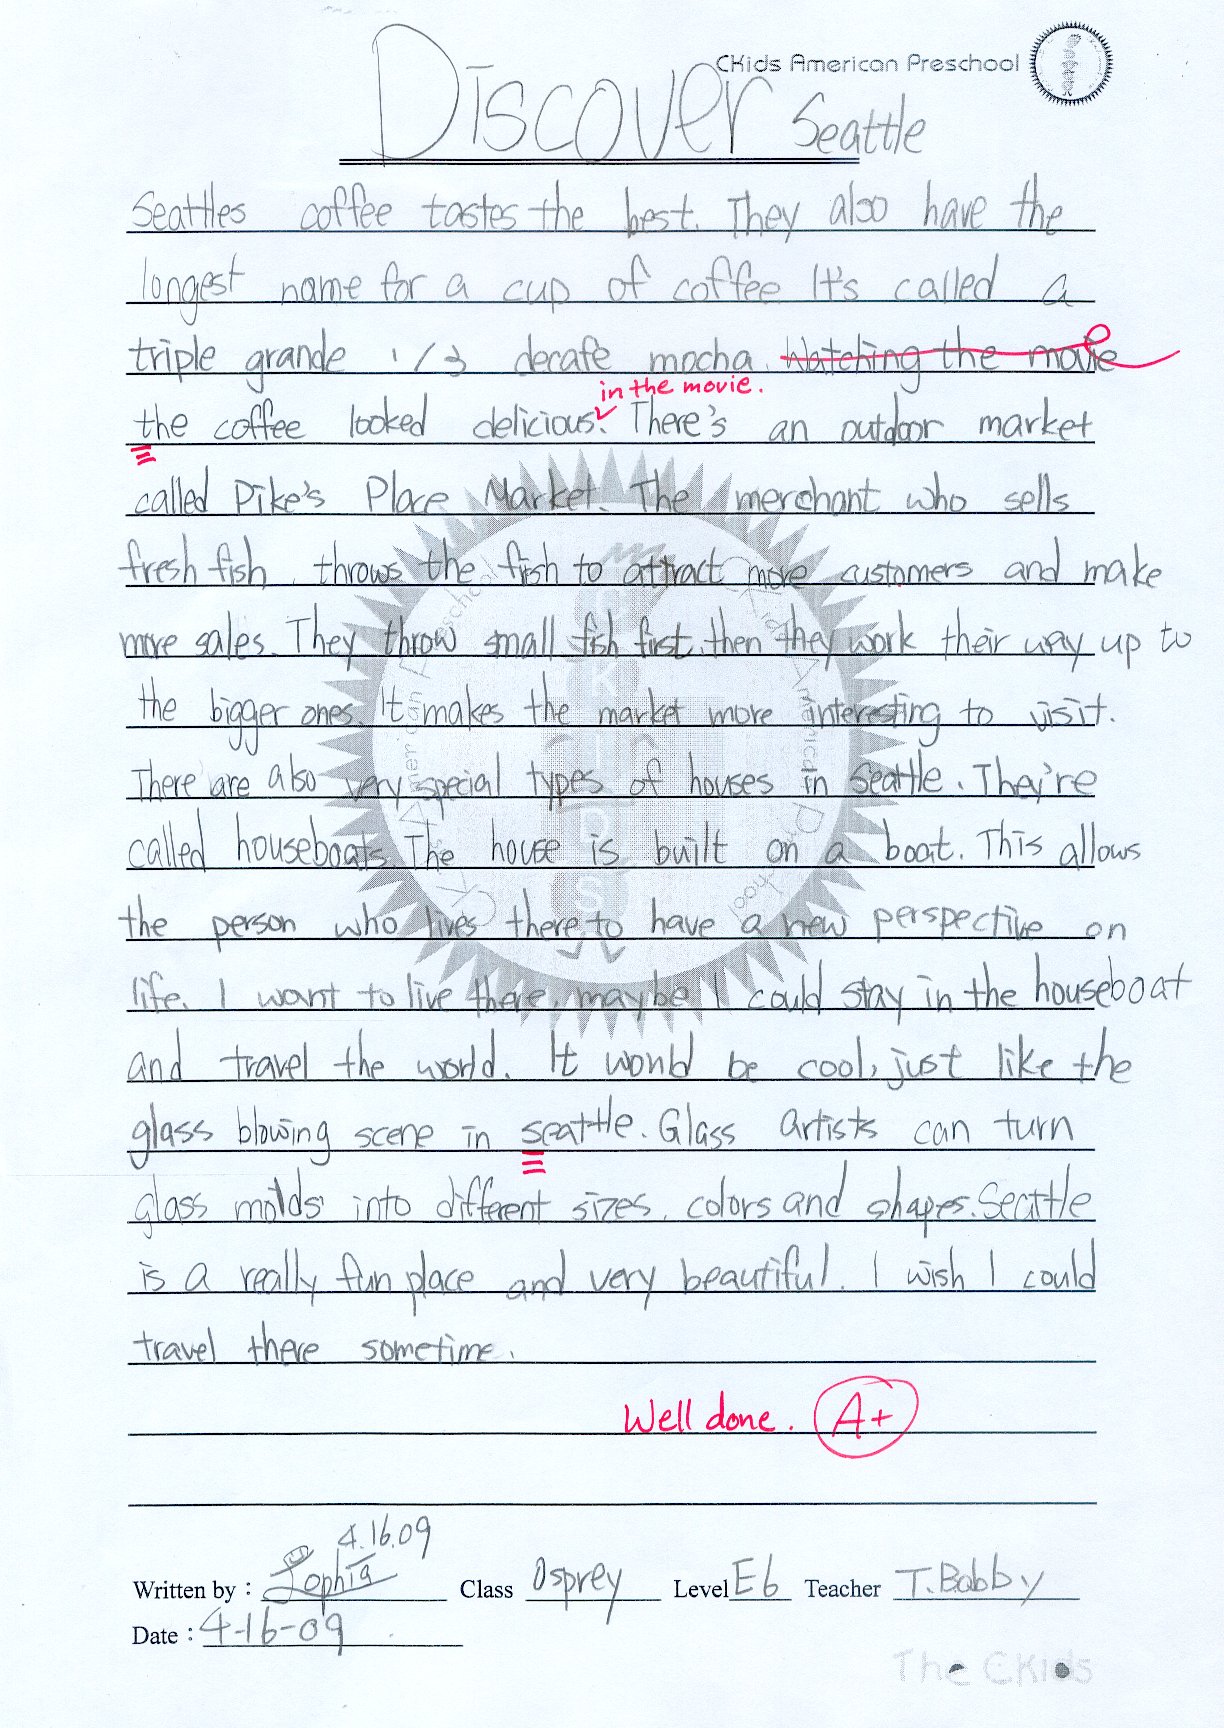 CKids American Preschool
Discover Seattle
Seattles coffee tastes the best. They also have the
longest name for a cup of coffee It's called a
triple grande 1/3 decafe mocha. Watching the movie
in the movie.
the coffee looked delicious. There's an outdoor market
called Pike's Place Market. The merchant who sells
fresh fish, throws the fish to attract more customers and make
more sales. They throw small fish first, then they work their way up to
the bigger ones. It makes the market more interesting to visit.
There are also very special types of houses in Seattle. They're
called houseboats. The house is built on a boat. This allows
the person who lives there to have a new perspective on
life. I want to live there, maybe I could stay in the houseboat
and travel the world. It would be cool, just like the
glass blowing scene in seattle. Glass artists can turn
glass molds into different sizes, colors and shapes. Seattle
is a really fun place and very beautiful. I wish I could
travel there sometime.
Well done. A+
4.16.09
Written by : Sophia Class Osprey Level E6 Teacher T. Bobby
Date : 4-16-09
The CKids